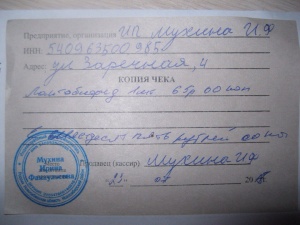 Предприятие, организация ИП Мухина И.Ф
ИНН: 540963500985
Адрес: ул Заречная, 4
КОПИЯ ЧЕКА
1шт 65р 00 коп
Шестьдесят пять рублей 00 коп
Продавец (кассир) Мухина ИФ
Ирина
«23» 07 20